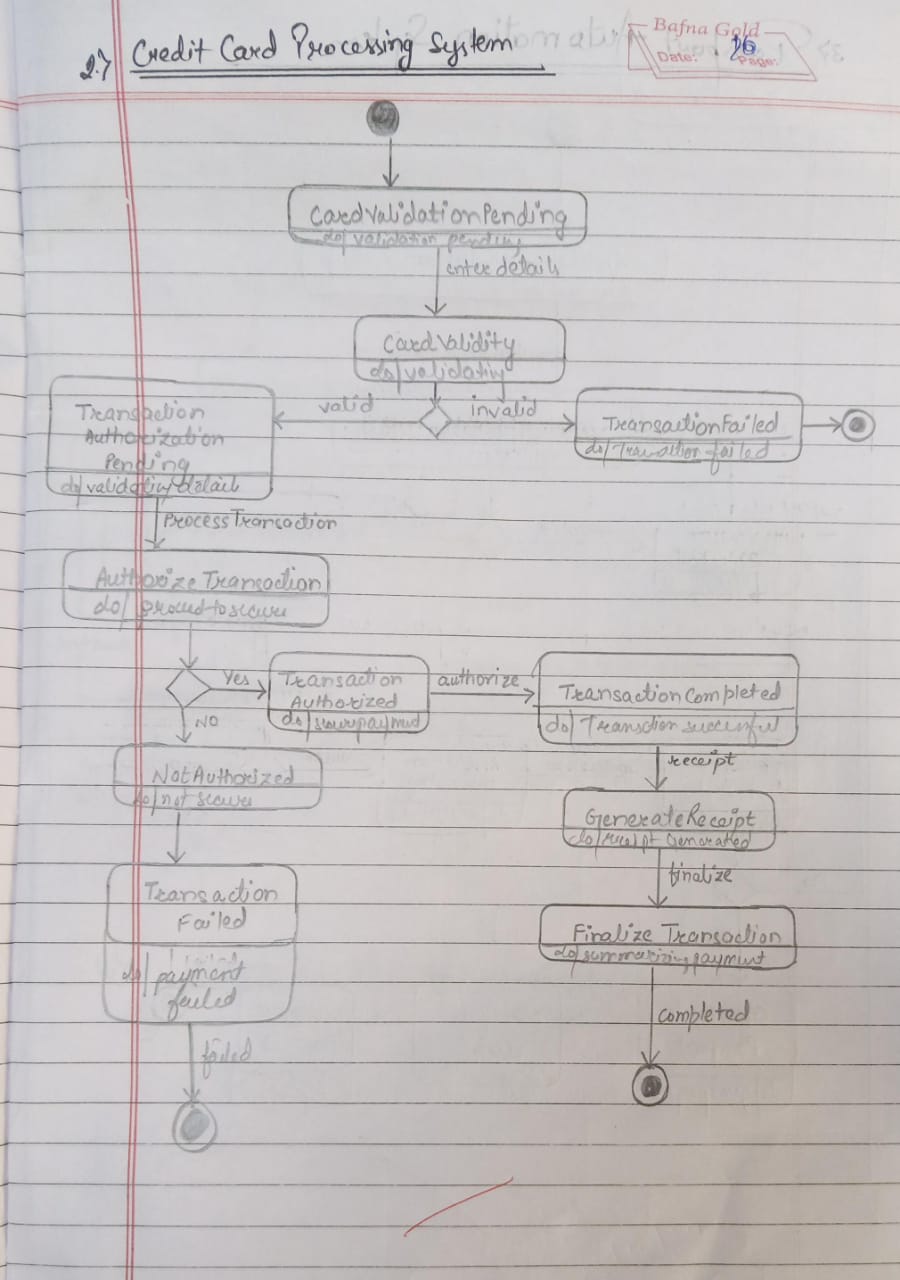 2.) Credit Card Processing System
Bafna Gold
Date: Page:
26
CardValidationPending
do/validation pending
enter details
CardValidity
do/validating
valid
invalid
Transaction
Authorization
Pending
do/validating detail
TransactionFailed
do/Transaction failed
ProcessTransaction
Authorize Transaction
do/ proceed to secure
Yes
Transaction
Authorized
do/securepayment
authorize
TransactionCompleted
do/ Transction successful
NO
receipt
NotAuthorized
do/not secure
GenerateReceipt
do/receipt Generated
finalize
Transaction
Failed
do/ payment
failed
Finalize Transaction
do/summarizing payment
completed
failed